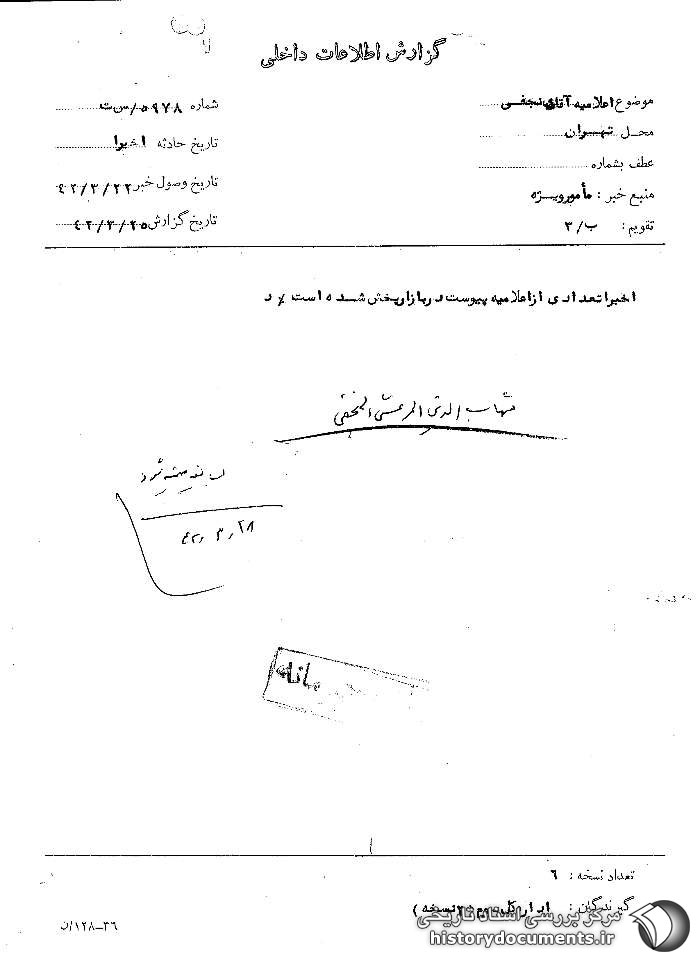 گزارش اطلاعات داخلی
موضوع اعلامیه آقای نجفی
محل تهران
عطف بشماره
منبع خبر : مأمور ویژه
تقویم : ب/۳
شماره ۵۹۷۸/س ت
تاریخ حادثه اخیرا
تاریخ وصول خبر ۴۲/۳/۲۲
تاریخ گزارش ۴۲/۳/۲۵
اخیرا تعدادی از اعلامیه پیوست در بازار پخش شده است / د
شهاب الدین المرعشی النجفی
ضمیمه شود
۴۲٫۳٫۲۸
محرمانه
تعداد نسخه : ۶
گیرندگان : اداره کل سوم ۲ نسخه )
۳۶-۱۲۸/ن
مرکز بررسی اسناد تاریخی
historydocuments.ir